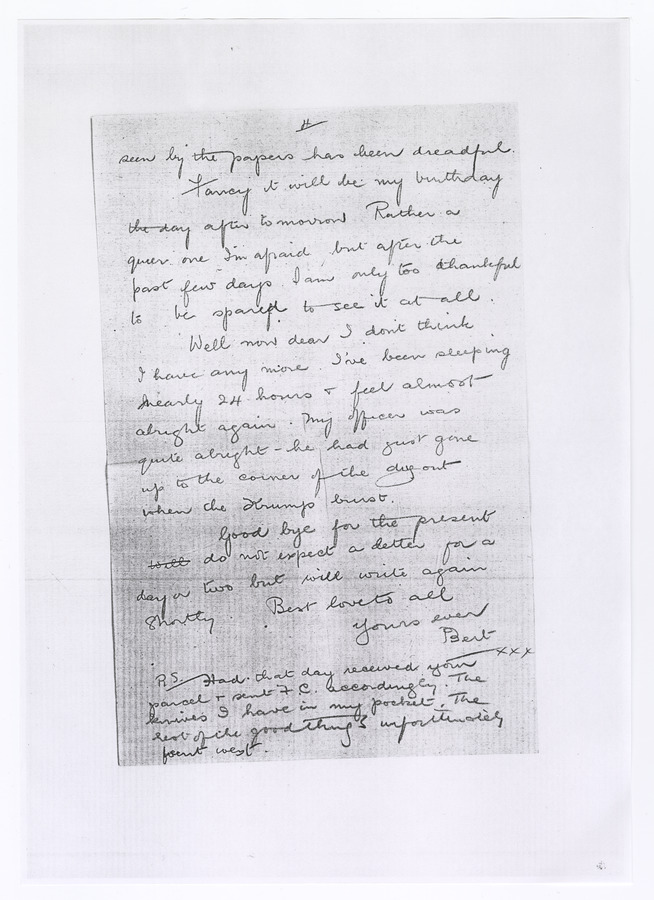 seen by the papers has been dreadful.
Fancy it will be my birthday
the day after tomorrow Rather a
queer one I'm afraid, but after the
past few days I am only too thankful
to be spared to see it at all.
Well now dear I don't think
I have any more. I've been sleeping
nearly 24 hours & feel almost
alright again. My officer was
quite alright - he had just gone
up to the corner of the dug out
when the Krumps burst.
Good bye for the present
will do not expect a letter for a
day or two but will write again
Shortly. Best love to all
Yours ever
Bert
xxx
P.S. Had that day received your
parcel & sent F.C. accordingly. The
knives I have in my pocket. The
rest of the good things unforttunately
went west.